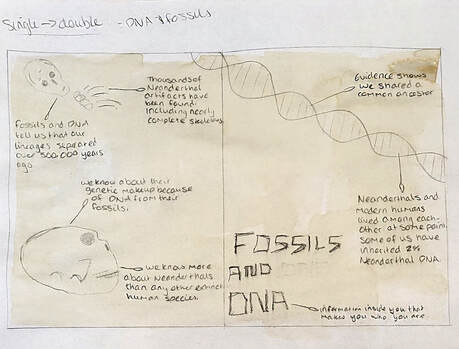 Single → double - DNA & fossils
Thousands of
Neanderthal
artifacts have
been found
including nearly
complete skeletons
Fossils and DNA
tell us that our
lineages separated
over 500 000 years
ago
we know about their
genetic makeup because
of DNA from their
fossils.
we know more
about Neanderthals
than any other extinct
human species.
Evidence shows
we shared a
common ancestor
Neanderthals and
modern humans
lived among each-
other at some point
some of us have
inherited 2%
Neanderthal DNA.
FOSSILS
AND
DNA
information inside you that
makes you who you are